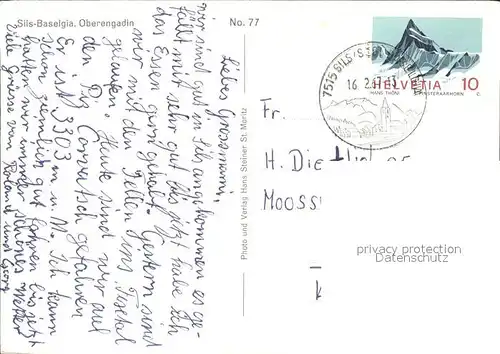 Sils-Baselgia, Oberengadin
No. 77
Liebes Grossmami,
wir sind gut in Sils angekommen es ge-
fällt mir sehr gut bis jetzt habe ich
das Essen gern gehabt. Gestern sind
wir mit den Fellen ins Fextal
gelaufen. Heute sind wir auf
den Piz Corvatsch gefahren
Er ist 3303 m ü. M. Ich kann
schon ziemlich gut fahren bis jetzt
hatten wir immer schönes Wetter
viele Grüsse von Roland und
Photo und Verlag Hans Steiner St. Moritz
7515 SILS/S
16. 2.
HELVETIA 10
HANS THÖNI
FINSTERAARHORN
C.
Fr.
H. Die
MOOSS
privacy protection
Datenschutz